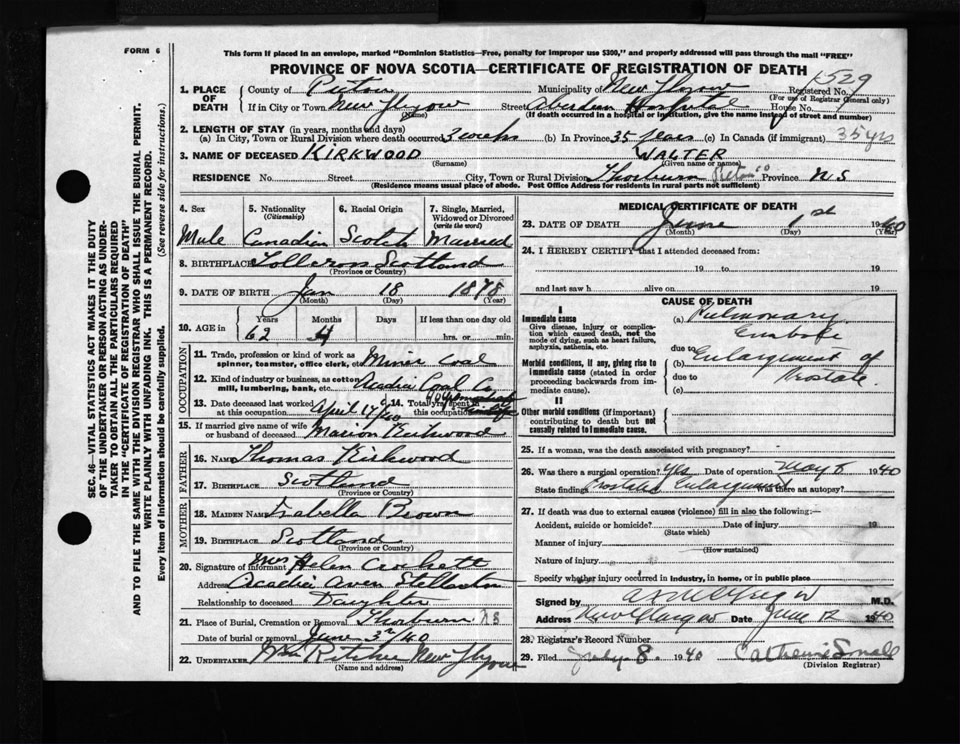 FORM 6
This form if placed in an envelope, marked "Dominion Statistics—Free, penalty for improper use $300," and properly addressed will pass through the mail "FREE"
PROVINCE OF NOVA SCOTIA—CERTIFICATE OF REGISTRATION OF DEATH
1529
1. PLACE OF DEATH
County of Pictou Municipality of New Glasgow Registered No.
(For use of Registrar General only)
If in City or Town New Glasgow Street Aberdeen Hospital House No.
(Name) (If death occurred in a hospital or institution, give the name instead of street and number)
2. LENGTH OF STAY (in years, months and days)
(a) In City, Town or Rural Division where death occurred 3 weeks (b) In Province 35 years (c) In Canada (if immigrant) 35 yrs
3. NAME OF DECEASED KIRKWOOD WALTER
(Surname) (Given name or names)
RESIDENCE No. Street City, Town or Rural Division Thorburn Pictou Co Province N S
(Residence means usual place of abode. Post Office Address for residents in rural parts not sufficient)
4. Sex Male
5. Nationality (Citizenship) Canadian
6. Racial Origin Scotch
7. Single, Married, Widowed or Divorced (write the word) Married
8. BIRTHPLACE Tollcross Scotland
(Province or Country)
9. DATE OF BIRTH Jan 18 1878
(Month) (Day) (Year)
10. AGE in Years Months Days If less than one day old
62 4 hrs. or min.
OCCUPATION
11. Trade, profession or kind of work as spinner, teamster, office clerk, etc. Miner Coal
12. Kind of industry or business, as cotton mill, lumbering, bank, etc. Acadia Coal Co
13. Date deceased last worked at this occupation April 17/40
14. Total yrs. spent in this occupation
15. If married give name of wife or husband of deceased Marion Kirkwood
FATHER
16. NAME Thomas Kirkwood
17. BIRTHPLACE Scotland
(Province or Country)
MOTHER
18. MAIDEN NAME Isabella Brown
19. BIRTHPLACE Scotland
(Province or Country)
20. Signature of informant Mrs Helen Crockett
Address Acadia Aven Stellarton
Relationship to deceased Daughter
21. Place of Burial, Cremation or Removal Thorburn N S
Date of burial or removal June 3rd/40
22. UNDERTAKER Wm Ritchie New Glasgow
(Name and address)
MEDICAL CERTIFICATE OF DEATH
23. DATE OF DEATH June 1st 1940
(Month) (Day) (Year)
24. I HEREBY CERTIFY that I attended deceased from:
19 to 19
and last saw h alive on 19
CAUSE OF DEATH
I
Immediate cause
Give disease, injury or complication which caused death, not the mode of dying, such as heart failure, asphyxia, asthenia, etc.
(a) Pulmonary Embole
due to
Morbid conditions, if any, giving rise to immediate cause (stated in order proceeding backwards from immediate cause).
(b) Enlargement of Prostate
due to
(c)
II
Other morbid conditions (if important) contributing to death but not causally related to immediate cause.
25. If a woman, was the death associated with pregnancy?
26. Was there a surgical operation? Yes Date of operation May 8 1940
State findings Prostatic Enlargement Was there an autopsy?
27. If death was due to external causes (violence) fill in also the following:—
Accident, suicide or homicide? Date of injury 19
(State which)
Manner of injury
(How sustained)
Nature of injury
Specify whether injury occurred in industry, in home, or in public place
Signed by M.D.
Address New Glasgow Date June 12 1940
28. Registrar's Record Number
29. Filed July 8 1940 Catherine Small
(Division Registrar)
SEC. 46—VITAL STATISTICS ACT MAKES IT THE DUTY
OF THE UNDERTAKER OR PERSON ACTING AS UNDERTAKER TO OBTAIN ALL THE PARTICULARS REQUIRED
IN THE "CERTIFICATE OF REGISTRATION OF DEATH"
AND TO FILE THE SAME WITH THE DIVISION REGISTRAR WHO SHALL ISSUE THE BURIAL PERMIT.
WRITE PLAINLY WITH UNFADING INK. THIS IS A PERMANENT RECORD.
Every item of information should be carefully supplied. (See reverse side for instructions.)